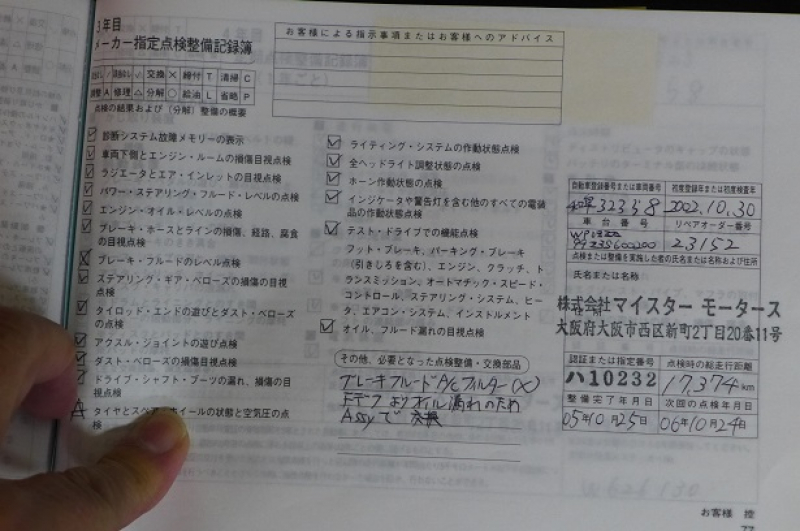 3年目
メーカー指定点検整備記録簿
お客様による指示事項またはお客様へのアドバイス
交換 × 締付 T 清掃 C
調整 A 修理 △ 分解 ○ 給油 L 省略 P
点検の結果および(分解)整備の概要
診断システム故障メモリーの表示
車両下側とエンジン・ルームの損傷目視点検
ラジエータとエア・インレットの目視点検
パワー・ステアリング・フルード・レベルの点検
エンジン・オイル・レベルの点検
ブレーキ・ホースとラインの損傷、経路、腐食
の目視点検
ブレーキ・フルードのレベル点検
ステアリング・ギア・ベローズの損傷の目視
点検
タイロッド・エンドの遊びとダスト・ベローズ
の点検
アクスル・ジョイントの遊び点検
ダスト・ベローズの損傷目視点検
ドライブ・シャフト・ブーツの漏れ、損傷の目
視点検
タイヤとスペア・ホイールの状態と空気圧の点
検
ライティング・システムの作動状態点検
全ヘッドライト調整状態の点検
ホーン作動状態の点検
インジケータや警告灯を含む他のすべての電装
品の作動状態点検
テスト・ドライブでの機能点検
フット・ブレーキ、パーキング・ブレーキ
(引きしろを含む)、エンジン、クラッチ、ト
ランスミッション、オートマチック・スピード・
コントロール、ステアリング・システム、ヒー
タ、エアコン・システム、インストルメント
オイル、フルード漏れの目視点検
その他、必要となった点検整備・交換部品
ブレーキフルード A/Cフィルター (×)
Fデフよりオイル漏れのため
Assyで 交換
自動車登録番号または車両番号 初度登録年または初度検査年
2002.10.30
車台番号 リペアオーダー番号
23152
点検または整備を実施した者の氏名または名称および住所
氏名または名称
株式会社マイスター モータース
大阪府大阪市西区新町2丁目20番11号
認証または指定番号 点検時の総走行距離
ハ10232 17,374 km
整備完了年月日 次回の点検年月日
05年10月25日 06年10月24日
お客様 控
77